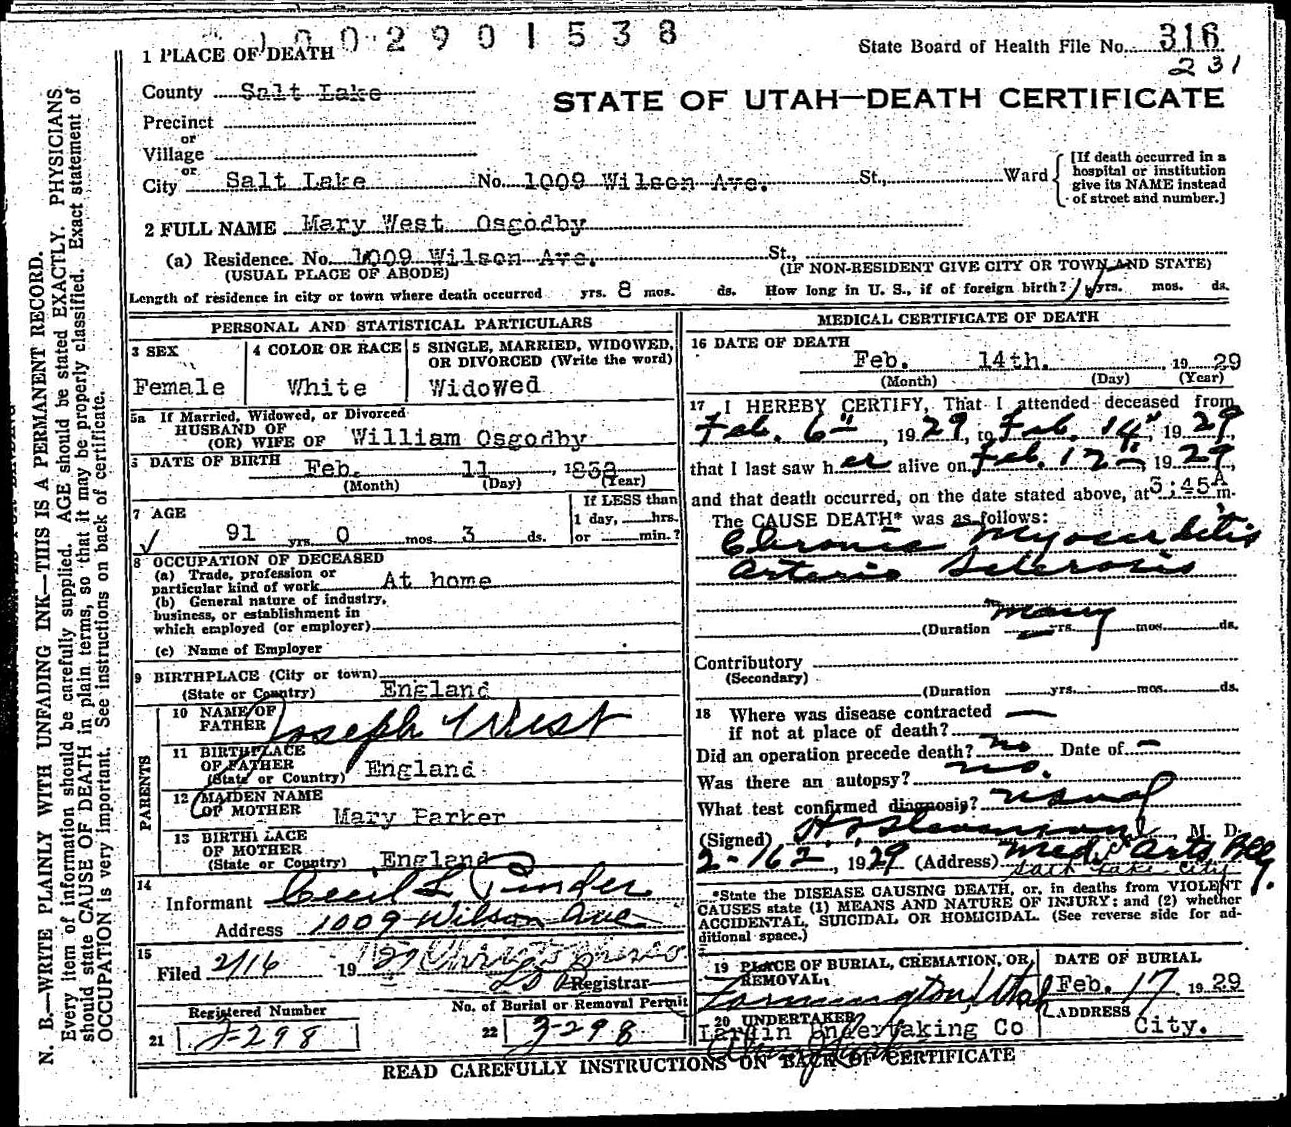 1002901538
State Board of Health File No. 316
231
1 PLACE OF DEATH
County Salt Lake
STATE OF UTAH—DEATH CERTIFICATE
Precinct
or
Village
or
City Salt Lake No. 1009 Wilson Ave. St., Ward
[If death occurred in a
hospital or institution
give its NAME instead
of street and number.]
2 FULL NAME Mary West Osgodby
(a) Residence. No. 1009 Wilson Ave. St.,
(USUAL PLACE OF ABODE) (IF NON-RESIDENT GIVE CITY OR TOWN AND STATE)
Length of residence in city or town where death occurred yrs. 8 mos. ds. How long in U. S., if of foreign birth? yrs. mos. ds.
PERSONAL AND STATISTICAL PARTICULARS
3 SEX
Female
4 COLOR OR RACE
White
5 SINGLE, MARRIED, WIDOWED,
OR DIVORCED (Write the word)
Widowed
5a If Married, Widowed, or Divorced
HUSBAND OF
(OR) WIFE OF William Osgodby
DATE OF BIRTH Feb. 11, 1838
(Month) (Day) (Year)
7 AGE
91 yrs. 0 mos. 3 ds.
If LESS than
1 day, hrs.
or min.?
8 OCCUPATION OF DECEASED
(a) Trade, profession or
particular kind of work At home
(b) General nature of industry,
business, or establishment in
which employed (or employer)
(c) Name of Employer
9 BIRTHPLACE (City or town)
(State or Country) England
PARENTS
10 NAME OF
FATHER Joseph West
11 BIRTHPLACE
OF FATHER
(State or Country) England
12 MAIDEN NAME
OF MOTHER Mary Parker
13 BIRTHPLACE
OF MOTHER
(State or Country) England
14
Informant Cecil L Pinder
Address 1009 Wilson Ave
15
Filed 2/16 1929
Registrar
Registered Number
21 2-298
No. of Burial or Removal Permit
22 2-298
MEDICAL CERTIFICATE OF DEATH
16 DATE OF DEATH
Feb. 14th. , 19 29
(Month) (Day) (Year)
17 I HEREBY CERTIFY, That I attended deceased from
Feb. 6th, 1929, to Feb. 14", 1929,
that I last saw her alive on Feb. 12th 1929,
and that death occurred, on the date stated above, at 3:45 A m.
The CAUSE DEATH* was as follows:
Chronic Myocarditis
Arterio Sclerosis
(Duration many yrs. mos. ds.
Contributory
(Secondary)
(Duration yrs. mos. ds.
18 Where was disease contracted —
if not at place of death?
Did an operation precede death? no Date of —
Was there an autopsy? no.
What test confirmed diagnosis? usual
(Signed) M. D.
2-16, 1929 (Address) Medic Arts Bldg.
Salt Lake City
*State the DISEASE CAUSING DEATH, or, in deaths from VIOLENT
CAUSES state (1) MEANS AND NATURE OF INJURY; and (2) whether
ACCIDENTAL, SUICIDAL OR HOMICIDAL. (See reverse side for ad-
ditional space.)
19 PLACE OF BURIAL, CREMATION, OR
REMOVAL,
Farmington, Utah
DATE OF BURIAL
Feb. 17 1929
20 UNDERTAKER
Larkin Undertaking Co
ADDRESS
City.
READ CAREFULLY INSTRUCTIONS ON BACK OF CERTIFICATE
N. B.—WRITE PLAINLY WITH UNFADING INK—THIS IS A PERMANENT RECORD.
Every item of information should be carefully supplied. AGE should be stated EXACTLY. PHYSICIANS
should state CAUSE OF DEATH in plain terms, so that it may be properly classified. Exact statement of
OCCUPATION is very important. See instructions on back of certificate.